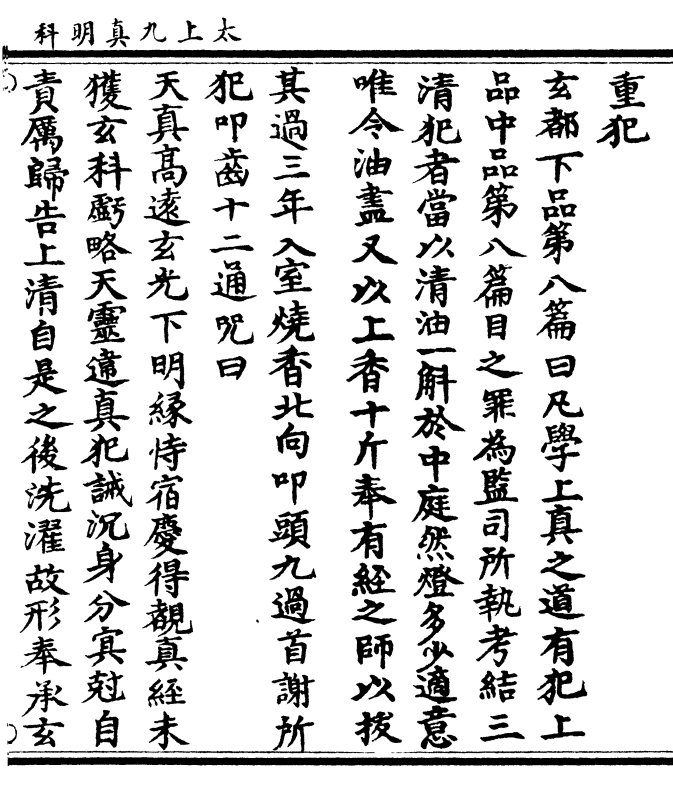 太上九真明科
重犯
玄都下品第八篇曰凡學上真之道有犯上
品中品第八篇目之罪為監司所執考結三
清犯者當以清油一斛於中庭然燈多少適意
唯令油盡又以上香十斤奉有經之師以拔
其過三年入室燒香北向叩頭九過首謝所
犯叩齒十二通呪曰
天真高遠玄光下明緣恃宿慶得覩真經未
獲玄科虧略天靈違真犯誡沉身分冥尅自
責厲歸告上清自是之後洗濯故形奉承玄